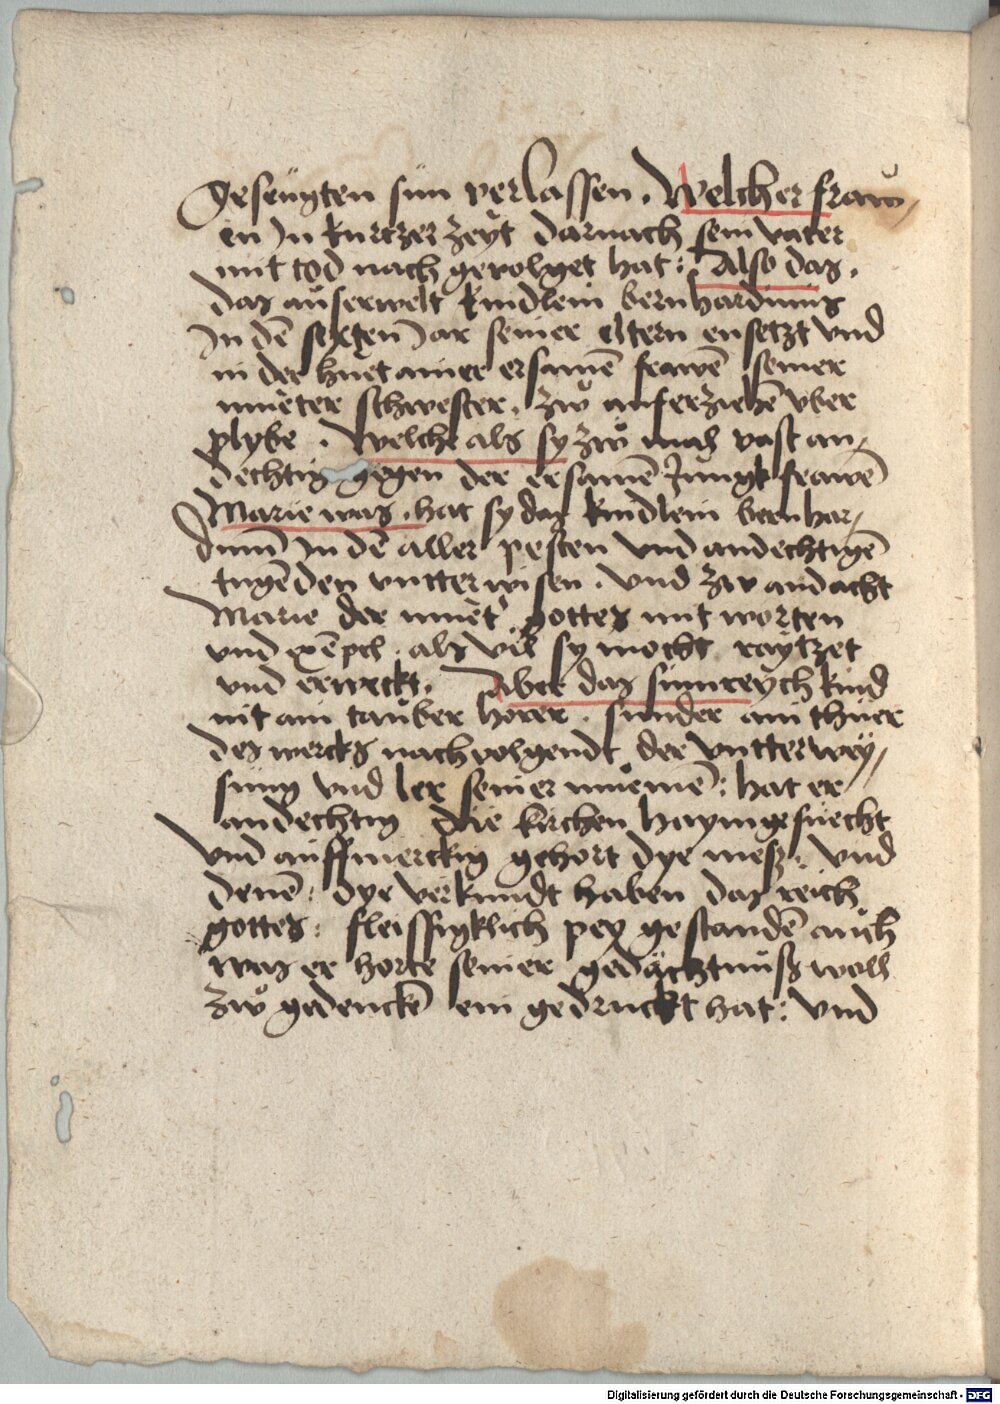 geseügten sün verlassen. Welcher fraw/
en Jn kurtzer zeyt darnach sein vater
mit tod nach gevolget hat: Also das.
das auserwelt kindlein bernhardinus
Jn dē sechsten Jar seiner eltern ensetzt vnd
in der huet ainer ersamē frawē seiner
mueter schwester. zwͦ auferziehē vber
plybe. Welche als sy zwͦ mal vast an/
dechtig gegen der ersamē Jungkfrawē
Marie was. hat sy das kindlein bernhar/
dinū Jn dē aller pesten vnd andechtigē
tugēden vntterwisen. vnd zw andacht
Marie der muet' gottes mit worten
vnd exēpel. als vil sy mocht raytzet
vnd erweckt. Aber das sinnreych kind
nit ain tauber horer. sunder ain thuer
des wercks nachvolgendt der vntterwey/
sung vnd ler seiner muemē: hat er
andechtig die kirchen haymgesuecht
vnd auffmerckig gehort dye meß. vnd
denē: dye verkundt haben das reich
gottes: fleissigklich pey gestandē auch
was er horte seiner gedächtnuß woll
zwͦ gedenckē ein gedruckt hat: vnd
Digitalisierung gefördert durch die Deutsche Forschungsgemeinschaft - DFG